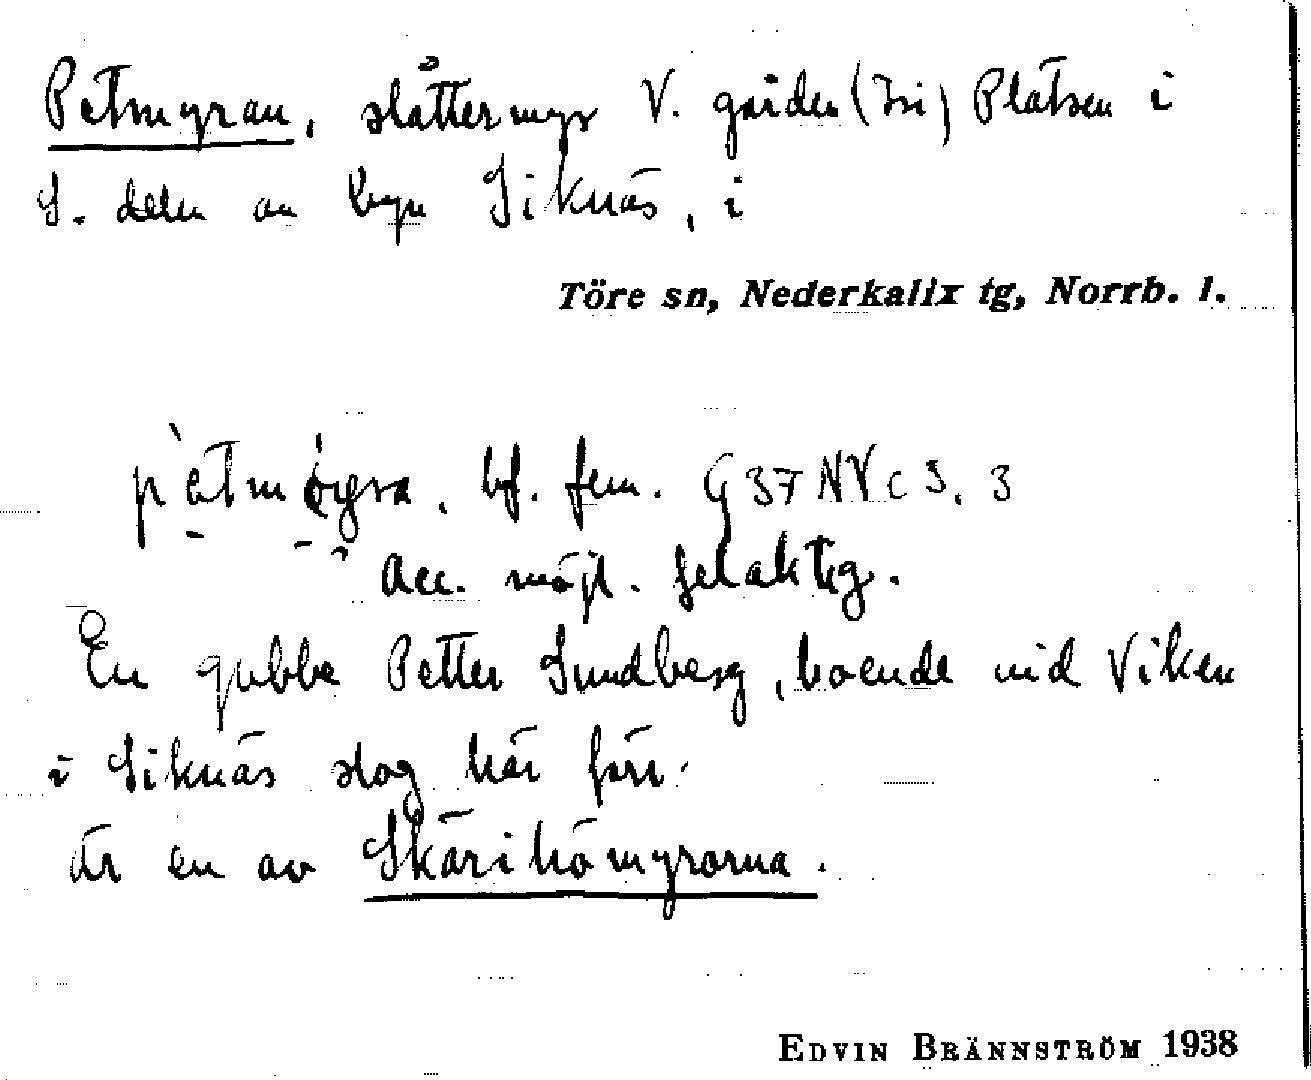 Petmyran, slåttermyr V. gården (Isi) Platsen i
S. delen av byn Siknäs, i
Töre sn, Nederkalix tg, Norrb. l.
pètmøyra, bf. fem. G 37 NV c S. 3
Acc. möjl. felaktig.
En gubbe Petter Sundberg, boende vid Viken
i Siknäs slog här förr.
är en av Skärihömyrorna.
EDVIN BRÄNNSTRÖM 1938